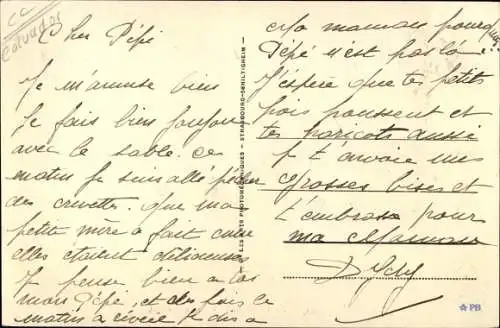 cc
Calvados
Cher Pépé
Je m'amuse bien
Je fais bien joujou
avec le sable. ce
matin je suis allé pêcher
des crevettes. que ma
petite mère a fait cuire
elles étaient délicieuses
Je pense bien a toi
mon Pépé, et des fois le
matin a réveil je dis a
LES ARTS PHOTOMÉCANIQUES - STRASBOURG-SCHILTIGHEIM
ma maman pourquoi
Pépé n'est pas là
J'espère que te petits
pois poussent et
tes haricots aussi
je t'envoie mes
grosses bises et
t'embrasse pour
ma
PB